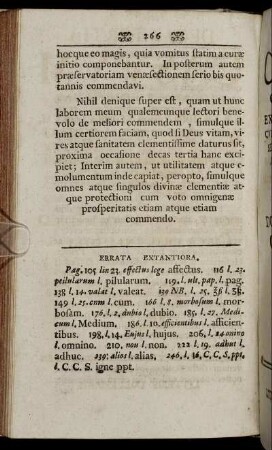 266
hocque eo magis, quia vomitus statim a curæ
initio componebantur. In posterum autem
præservatoriam venæsectionem serio bis quo-
tannis commendavi.
Nihil denique super est, quam ut hunc
laborem meum qualemcunque lectori bene-
volo de meliori commendem, simulque il-
lum certiorem faciam, quod si Deus vitam, vi-
res atque sanitatem clementissime daturus sit,
proxima occasione decas tertia hanc exci-
piet; Interim autem, ut utilitatem atque e-
molumentum inde capiat, peropto, simulque
omnes atque singulos divinæ clementiæ at-
que protectioni cum voto omnigenæ
prosperitatis etiam atque etiam
commendo.
ERRATA EXTANTIORA.
Pag. 105 lin 23. effectus lege affectus. 116 l. 23.
peilularum l. pilularum. 119. l. ult, pap, l. pag.
138 l, 14. valat l, valeat. 139 NB, l. 25.
149 l. 25. cnm l. cum. 166 l. 8. morbosum l, mor-
bosam. 176, l. 2, dubia l, dubio. 185. l. 27. Medi-
eum l, Medium, 186. l. 10. efficientibus l, afficien-
tibus. 198, l, 14. Eujus l, hujus. 206, l, 24 omino
l. omnino. 210. nou l. non. 222 l, 19. adhut l.
adhuc. 239; alios l, alias. 246. l. 16, C, C, S, ppt,
l, C. C. S. igne ppt.